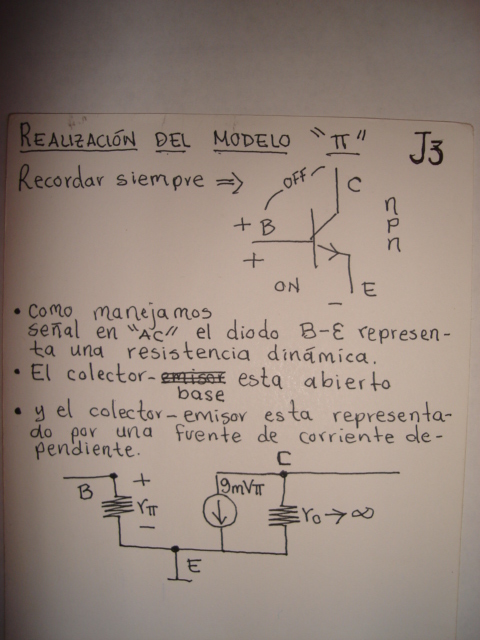 REALIZACIÓN DEL MODELO "π" J3
Recordar siempre =>
OFF
C
+ B
+
n
p
n
ON
E
−
• Como manejamos
señal en "AC" el diodo B-E represen-
ta una resistencia dinámica.
• El colector-emisor esta abierto
base
• y el colector-emisor esta representa-
do por una fuente de corriente de-
pendiente.
C
B + gmVπ
rπ ro → ∞
−
E